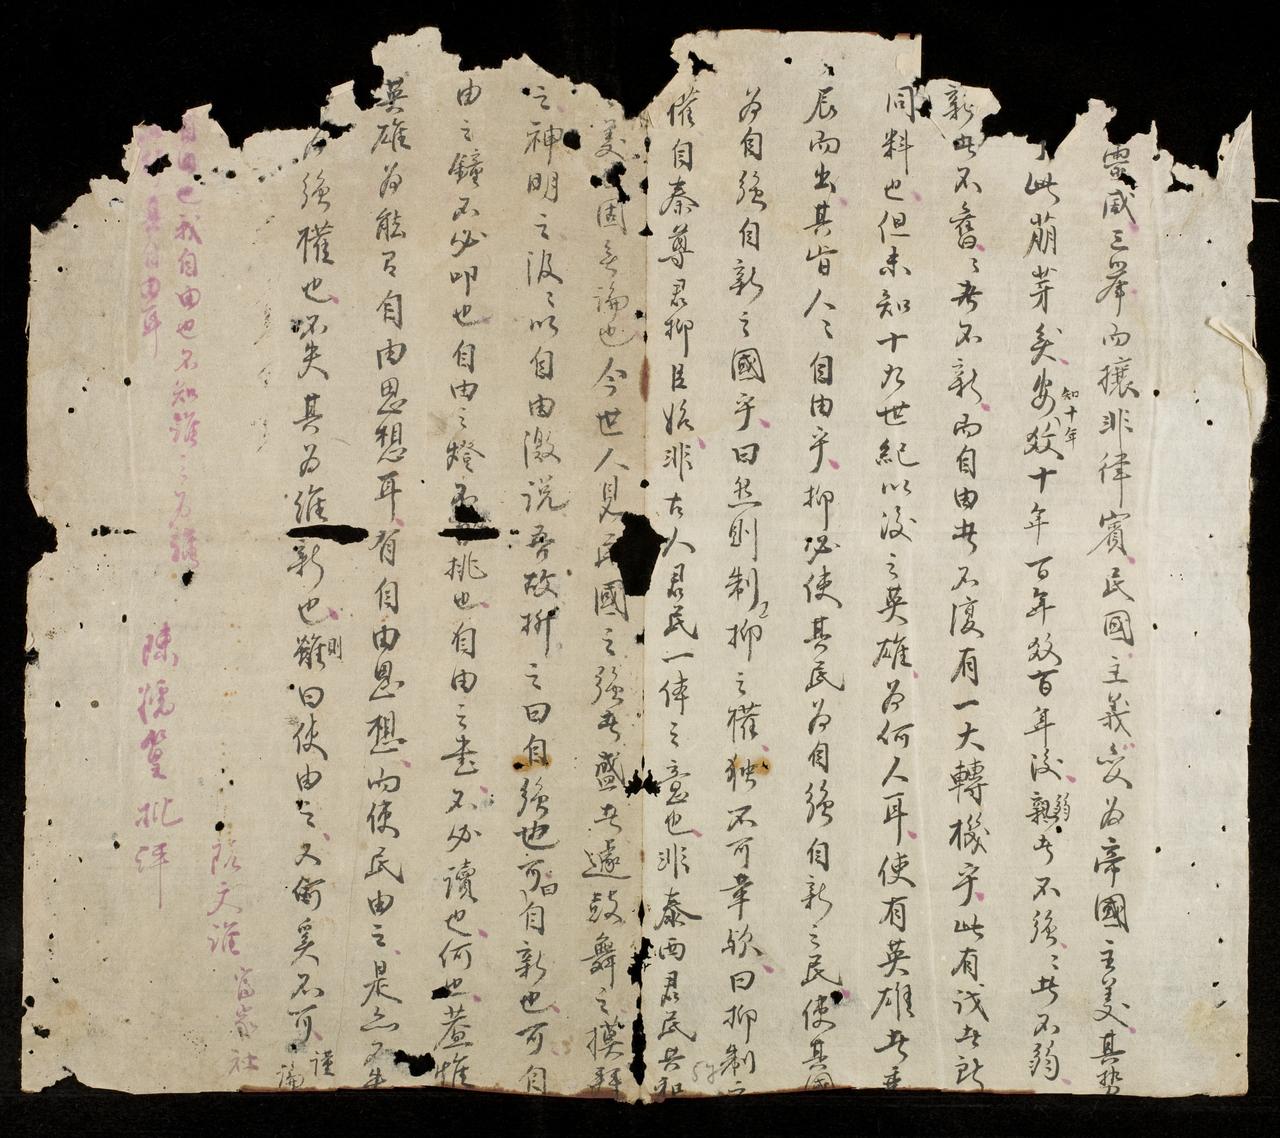 雷威三舉而攘非律賓民國主義变為帝國主義其勢
此萠芽矣安知十年效十年百年效百年後弱者不強〻者不弱
新者不舊〻者不新而自由者不復有一大轉機乎此有識者所
同料也但未知十九世紀以後之英雄為何人耳使有英雄者乘
辰而出其皆人〻自由乎抑必使其民為自強自新之民使其國
為自強自新之國乎曰然則制抑之權独不可章欤曰抑制之
權自秦尊君抑臣始非古人君民一体之意也非泰西君民共和
美固無論也今世人見民國之強者盛者遽鼓舞之摸擬
之神明之汲〻以自由激説吾故掰之曰自強也可曰自新也可自
由之鐘不必叩也自由之燈不必挑也自由之書不必讀也何也蓋惟
英雄為能有自由思想耳有自由思想而使民由之是亦不失
為強權也不失其為維新也雖則曰使由之又奚不可謹論
自由也我自由也不知誰之為
真自由耳
陳撓篁批評
阮文誰富家社